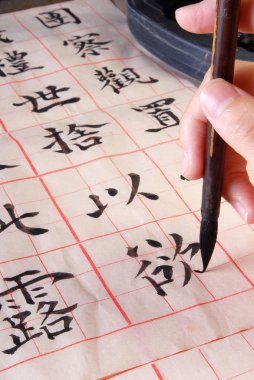 團察觀置
禮世捨以欲
露